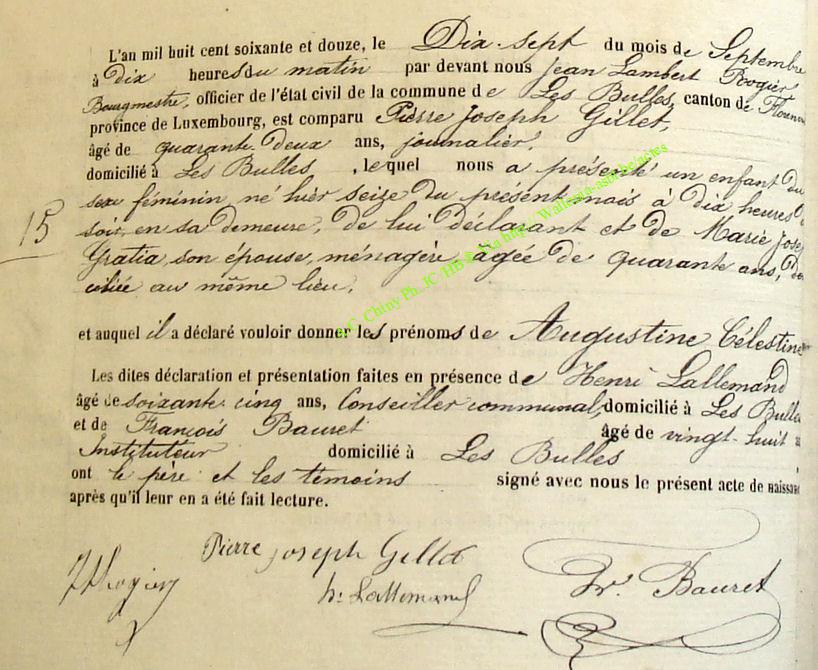 L'an mil huit cent soixante et douze, le Dix-sept du mois de Septembre
à dix heures du matin par devant nous Jean Lambert Rogier
Bourgmestre, officier de l'état civil de la commune de Les Bulles, canton de Floren
province de Luxembourg, est comparu Pierre Joseph Gillet,
âgé de quarante-deux ans, journalier,
domicilié à Les Bulles, lequel nous a présenté un enfant du
sexe féminin né hier seize du présent mois à dix heures d
15
soir, en sa demeure, de lui déclarant et de Marie Jose
Gratia, son épouse, ménagère, âgée de quarante ans, do
ciliée au même lieu,
et auquel il a déclaré vouloir donner les prénoms de Augustine Célestine
Les dites déclaration et présentation faites en présence de Henri Lallemand
âgé de soixante cinq ans, Conseiller communal, domicilié à Les Bulles
et de François Bauret âgé de vingt-huit a
Instituteur domicilié à Les Bulles
ont le père et les témoins signé avec nous le présent acte de naissan
après qu'il leur en a été fait lecture.
Pierre joseph Gillet
JLRogier h: Lallemand Fr. Bauret